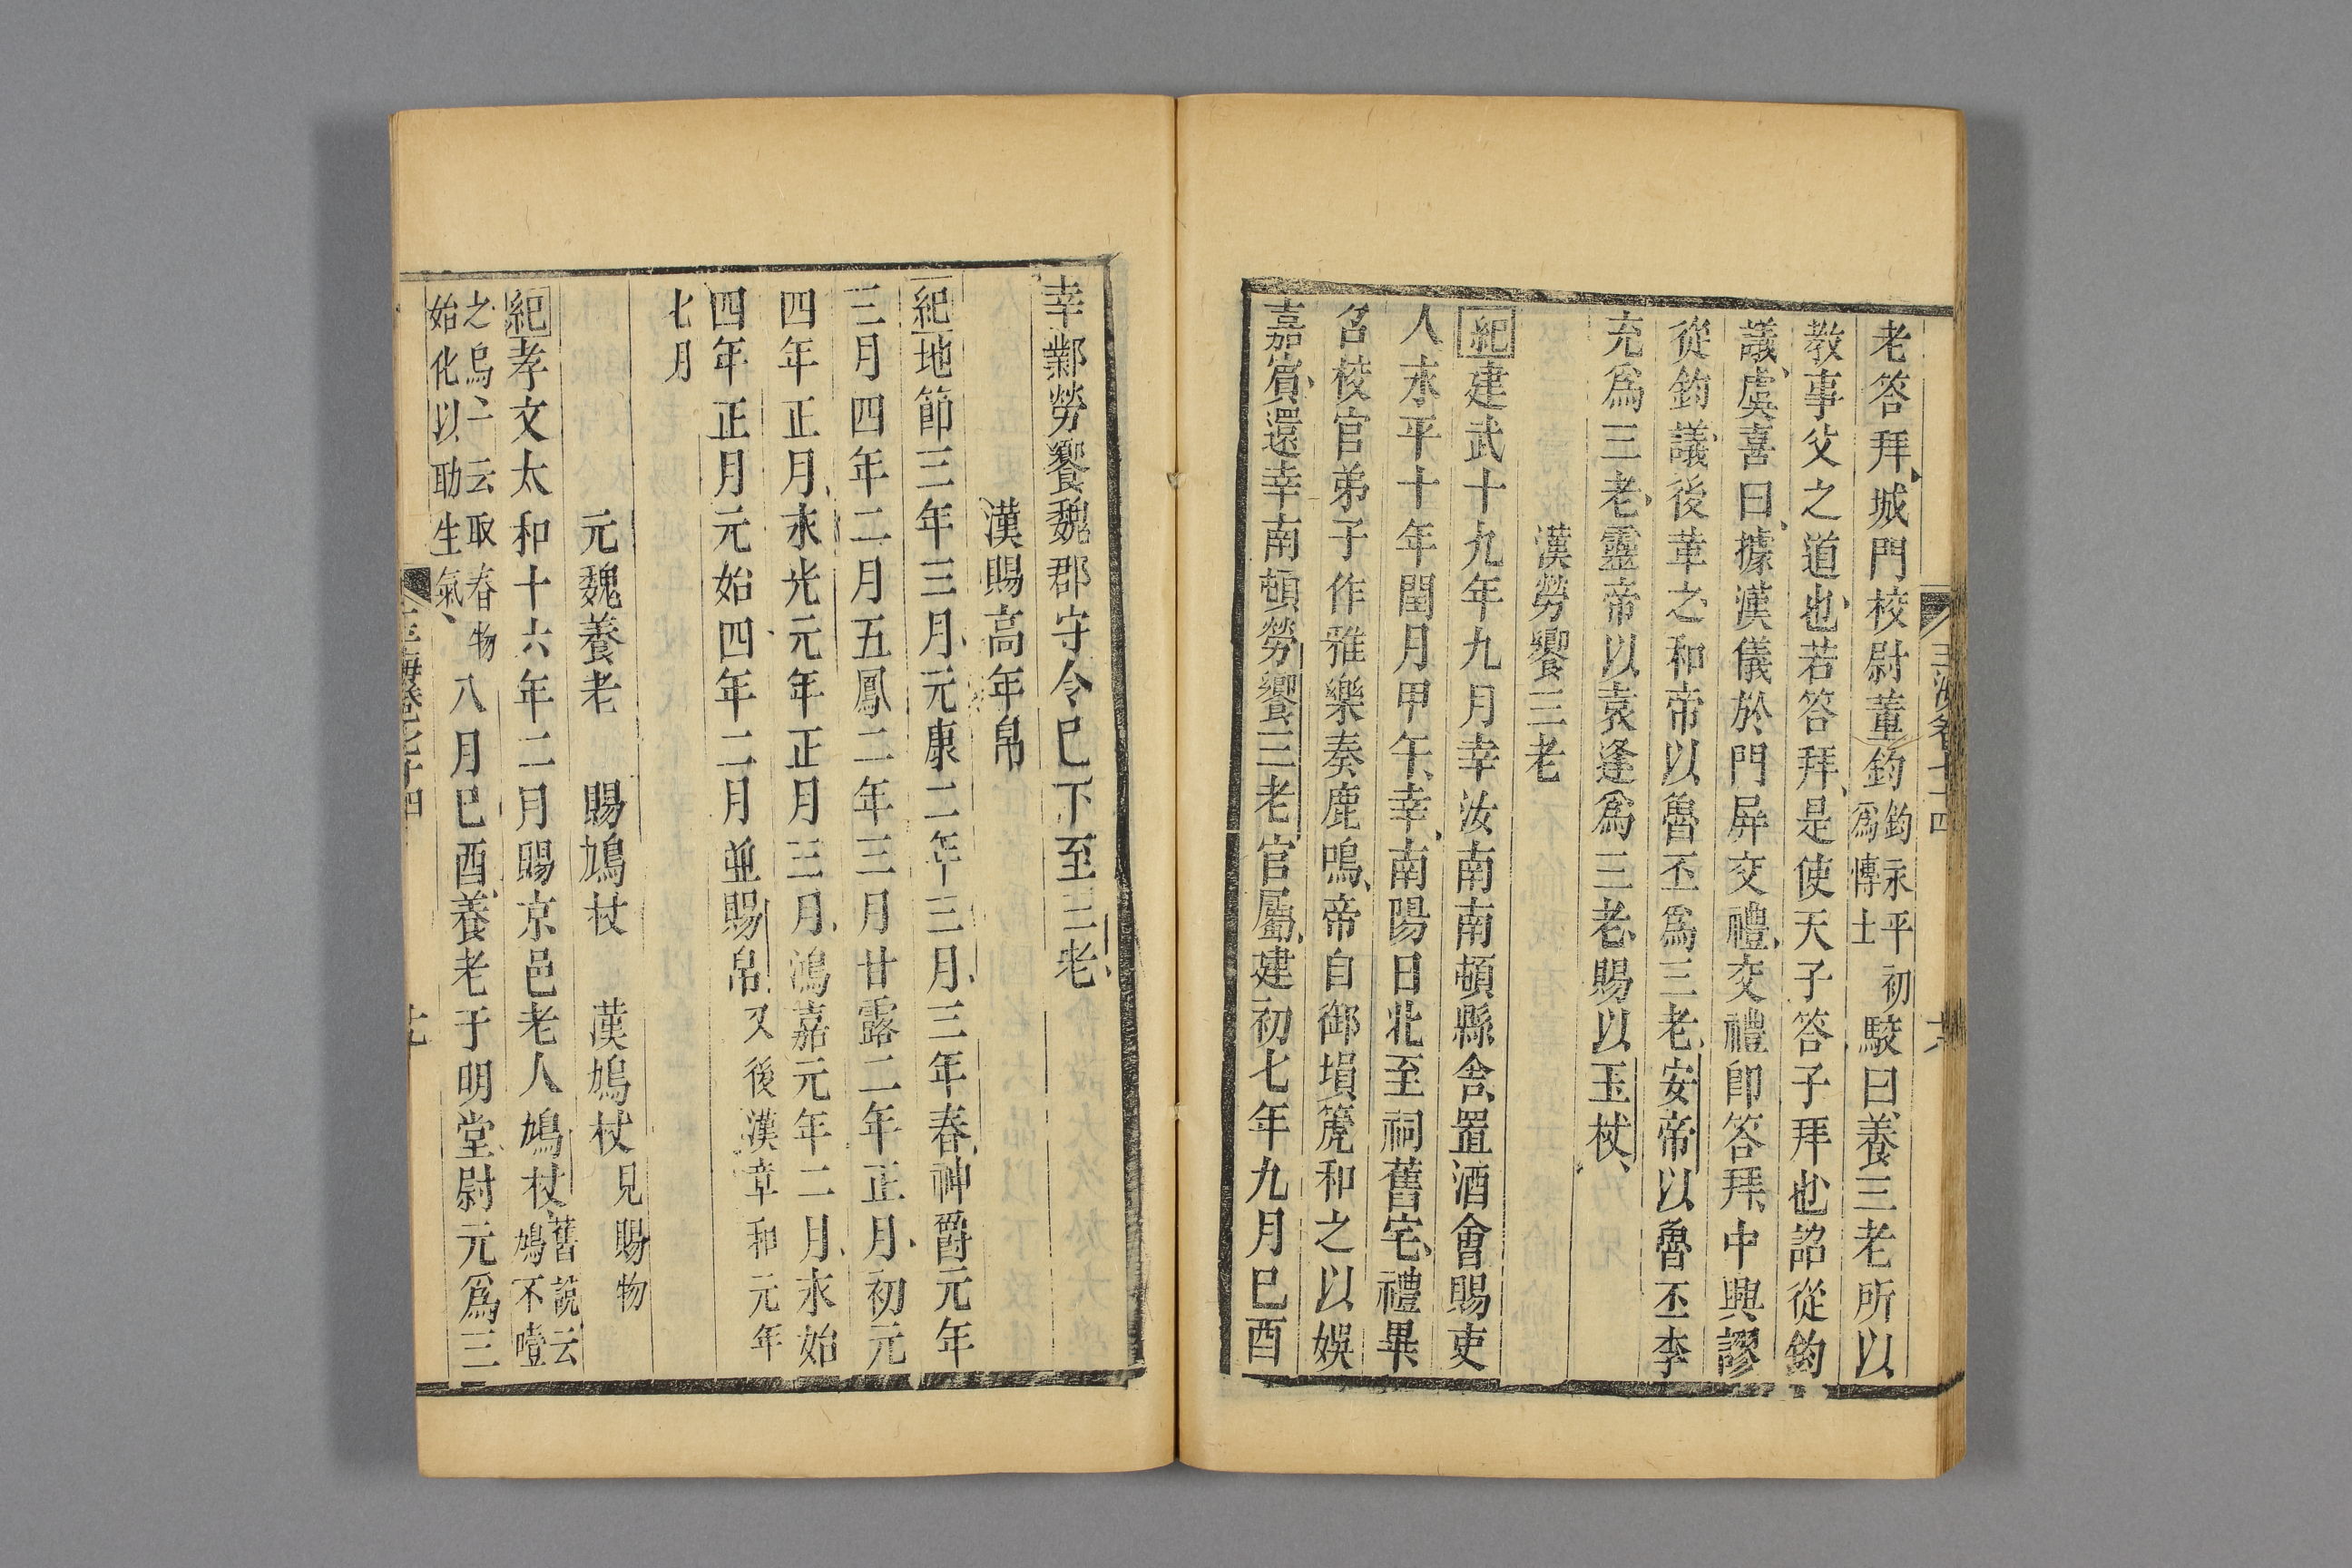 玉海卷七十四 六
老答拜城門校尉董鈞鈞永平初爲博士駮曰養三老所以
教事父之道也若答拜是使天子答子拜也詔從鈞
議虞喜曰據漢儀於門屏交禮交禮即答拜中興謬
從鈞議後革之和帝以魯丕爲三老安帝以魯丕李
充爲三老靈帝以袁逢爲三老賜以玉杖
漢勞饗三老
紀建武十九年九月幸汝南南頓縣舍置酒會賜吏
人永平十年閏月甲午幸南陽日北至祠舊宅禮畢
召校官弟子作雅樂奏鹿鳴帝自御塤箎和之以娛
嘉賓還幸南頓勞饗三老官屬建初七年九月巳酉
幸鄴勞饗魏郡守令巳下至三老
漢賜高年帛
紀地節三年三月元康二年三月三年春神爵元年
三月四年二月五鳳二年三月甘露二年正月初元
四年正月永光元年正月三月鴻嘉元年二月永始
四年正月元始四年二月並賜帛又後漢章和元年
七月
元魏養老 賜鳩杖 漢鳩杖見賜物
紀孝文太和十六年二月賜京邑老人鳩杖舊說云鳩不噎
之鳥一云取春物始化以助生氣八月巳酉養老于明堂尉元爲三
玉海卷七十四 七